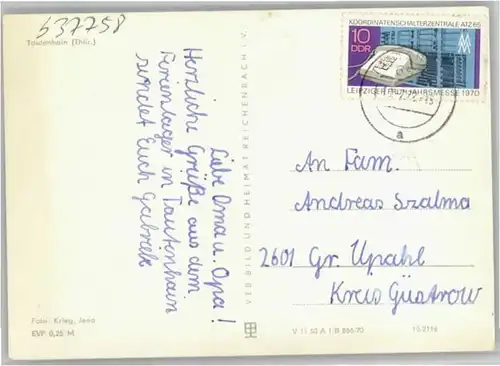 637758
Tautenhain (Thür.)
Liebe Oma u. Opa!
Herzliche Grüße aus dem
Ferienlager in Tautenhain
sendet Euch Gabriele
Foto: Krieg, Jena
EVP 0,25 M
VEB BILD UND HEIMAT REICHENBACH I. V.
V 11 50 A 1/B 866/70
KOORDINATENSCHALTERZENTRALE ATZ 65
10
DDR
LEIPZIGER FRÜHJAHRSMESSE 1970
a
An Fam.
Andreas Szalma
2601 Gr. Upahl
Kreis Güstrow